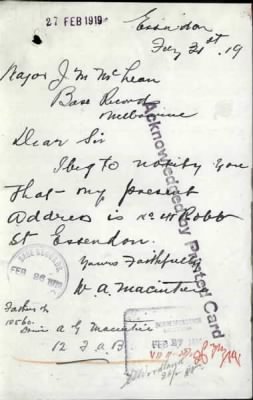 27 FEB 1919
Essendon
Feby 21st 19
Major J. M. McLean
Base Records
Melbourne
Dear Sir
I beg to notify you
that my present
address is No 41 Robb
St Essendon.
Yours Faithfully
W. A. Macintire
Acknowledged by Printed Card
FEB 26 1919
Father of
A G Macintire
12 F.A.B.
FEB 27